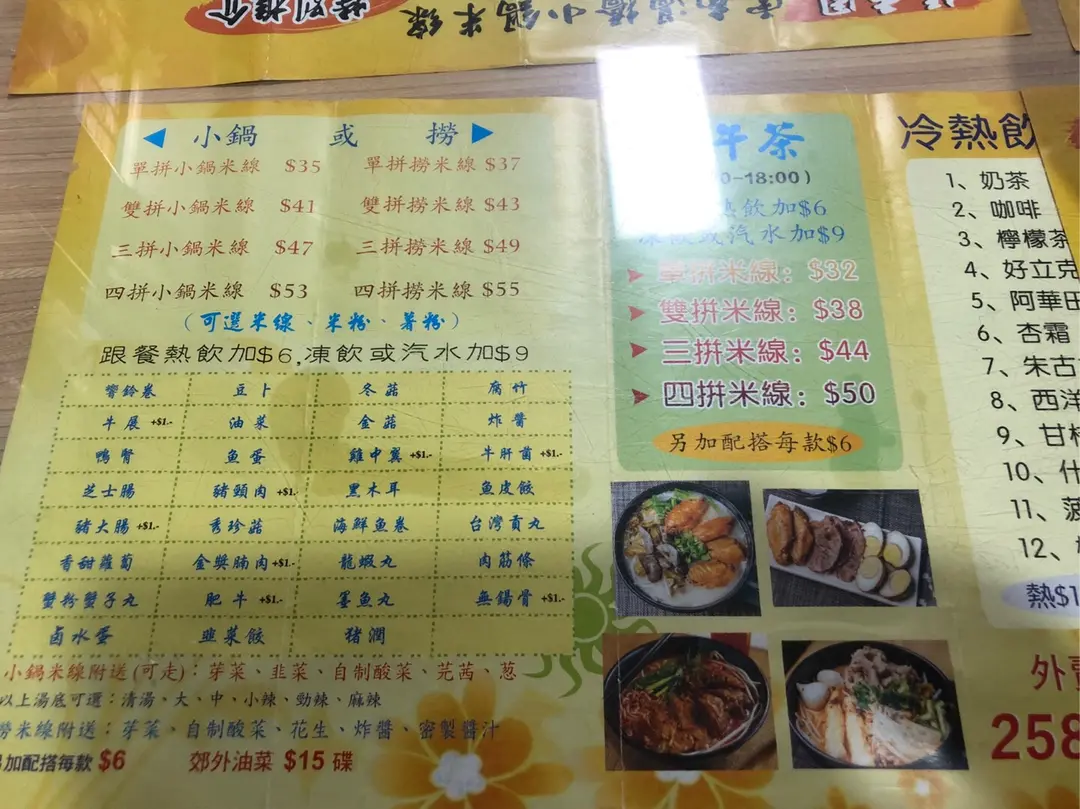 特別推介
雲南過橋小鍋米線
小鍋 或 撈
單拼小鍋米線 $35 單拼撈米線 $37
雙拼小鍋米線 $41 雙拼撈米線 $43
三拼小鍋米線 $47 三拼撈米線 $49
四拼小鍋米線 $53 四拼撈米線 $55
(可選米線、米粉、薯粉)
跟餐熱飲加$6,凍飲或汽水加$9
響鈴卷 豆卜 冬菇 腐竹
牛展+$1.- 油菜 金菇 炸醬
鴨腎 魚蛋 雞中翼+$1.- 牛肝菌+$1.-
芝士腸 豬頸肉+$1.- 黑木耳 魚皮餃
豬大腸+$1.- 秀珍菇 海鮮魚卷 台灣貢丸
香甜蘿蔔 金獎腩肉+$1.- 龍蝦丸 肉筋條
蟹粉蟹子丸 肥牛+$1.- 墨魚丸 無錫骨+$1.-
鹵水蛋 韭菜餃 豬潤
小鍋米線附送(可走):芽菜、韭菜、自制酸菜、芫茜、葱
以上湯底可選:清湯、大、中、小辣、勁辣、麻辣
撈米線附送:芽菜、自制酸菜、花生、炸醬、密製醬汁
加配搭每款 $6 郊外油菜 $15 碟
午茶
0-18:00)
熱飲加$6
凍飲或汽水加$9
單拼米線: $32
雙拼米線: $38
三拼米線: $44
四拼米線: $50
另加配搭每款$6
冷熱飲
1、奶茶
2、咖啡
3、檸檬茶
4、好立克
5、阿華田
6、杏霜
7、朱古
8、西洋
9、甘
10、什
11、菠
12、
熱$1
外賣
258